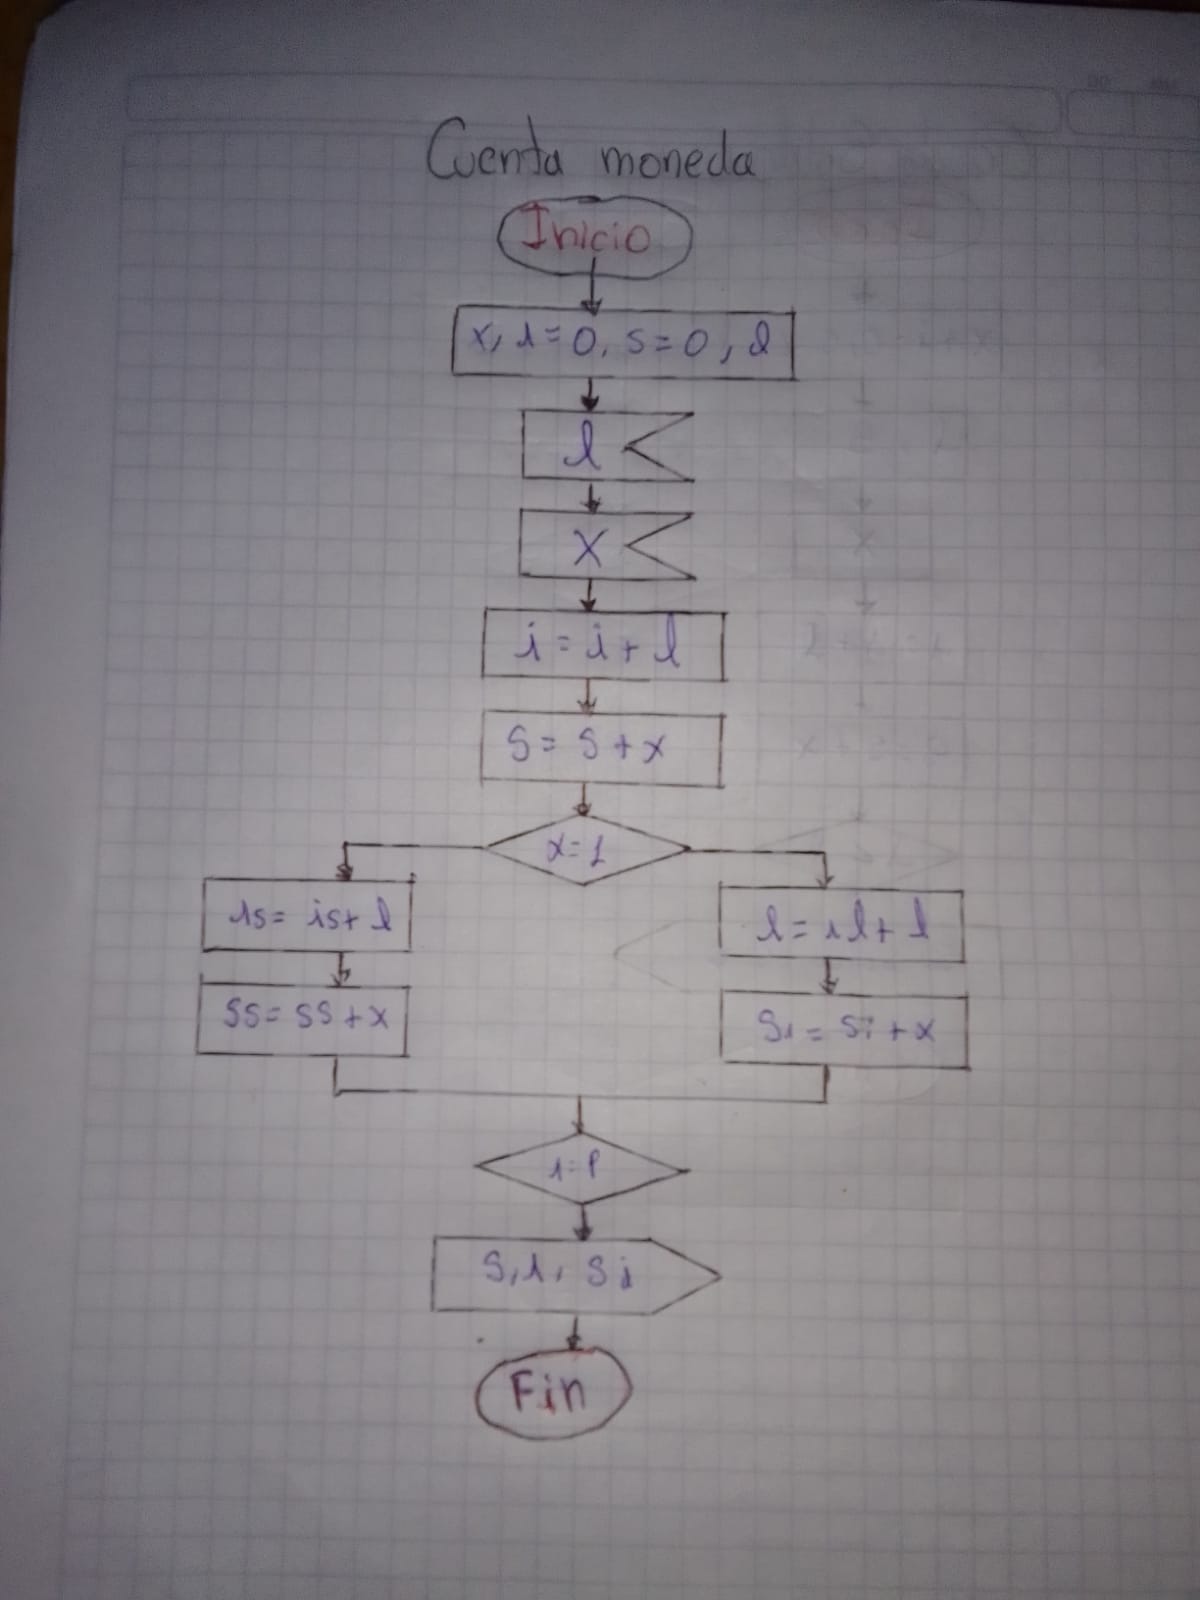 Cuenta moneda
Inicio
x, i=0, s=0, l
l
X
i = i + l
S = S + x
x=1
is= is+ l
l= il+ l
SS= SS+x
Si = Si + x
i=l
S, i, Si
Fin